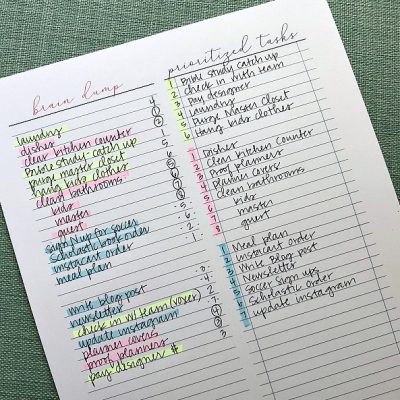 brain dump
laundry 4
dishes
clear kitchen counter
bible study catch up 1
purge master closet
hang kids clothes
clean bathrooms
kids
master
guest
sign up for soccer
scholastic book order
instacart order
meal plan
write blog post
newsletter
check in w/ team (voxer)
update instagram
planner covers
proof planners
pay designer # 3
prioritized tasks
1 Bible study catch up
2 check in with team
3 Pay designer
4 Laundry
5 Purge Master Closet
6 Hang kids clothes
1 Dishes
2 Clear kitchen Counter
3 Proof planners
4 Planner covers
5 Clean bathrooms
6 kids
7 master
8 guest
1 Meal plan
2 Instacart order
3 Write Blog post
4 Newsletter
5 Soccer sign ups
6 Scholastic order
7 update instagram